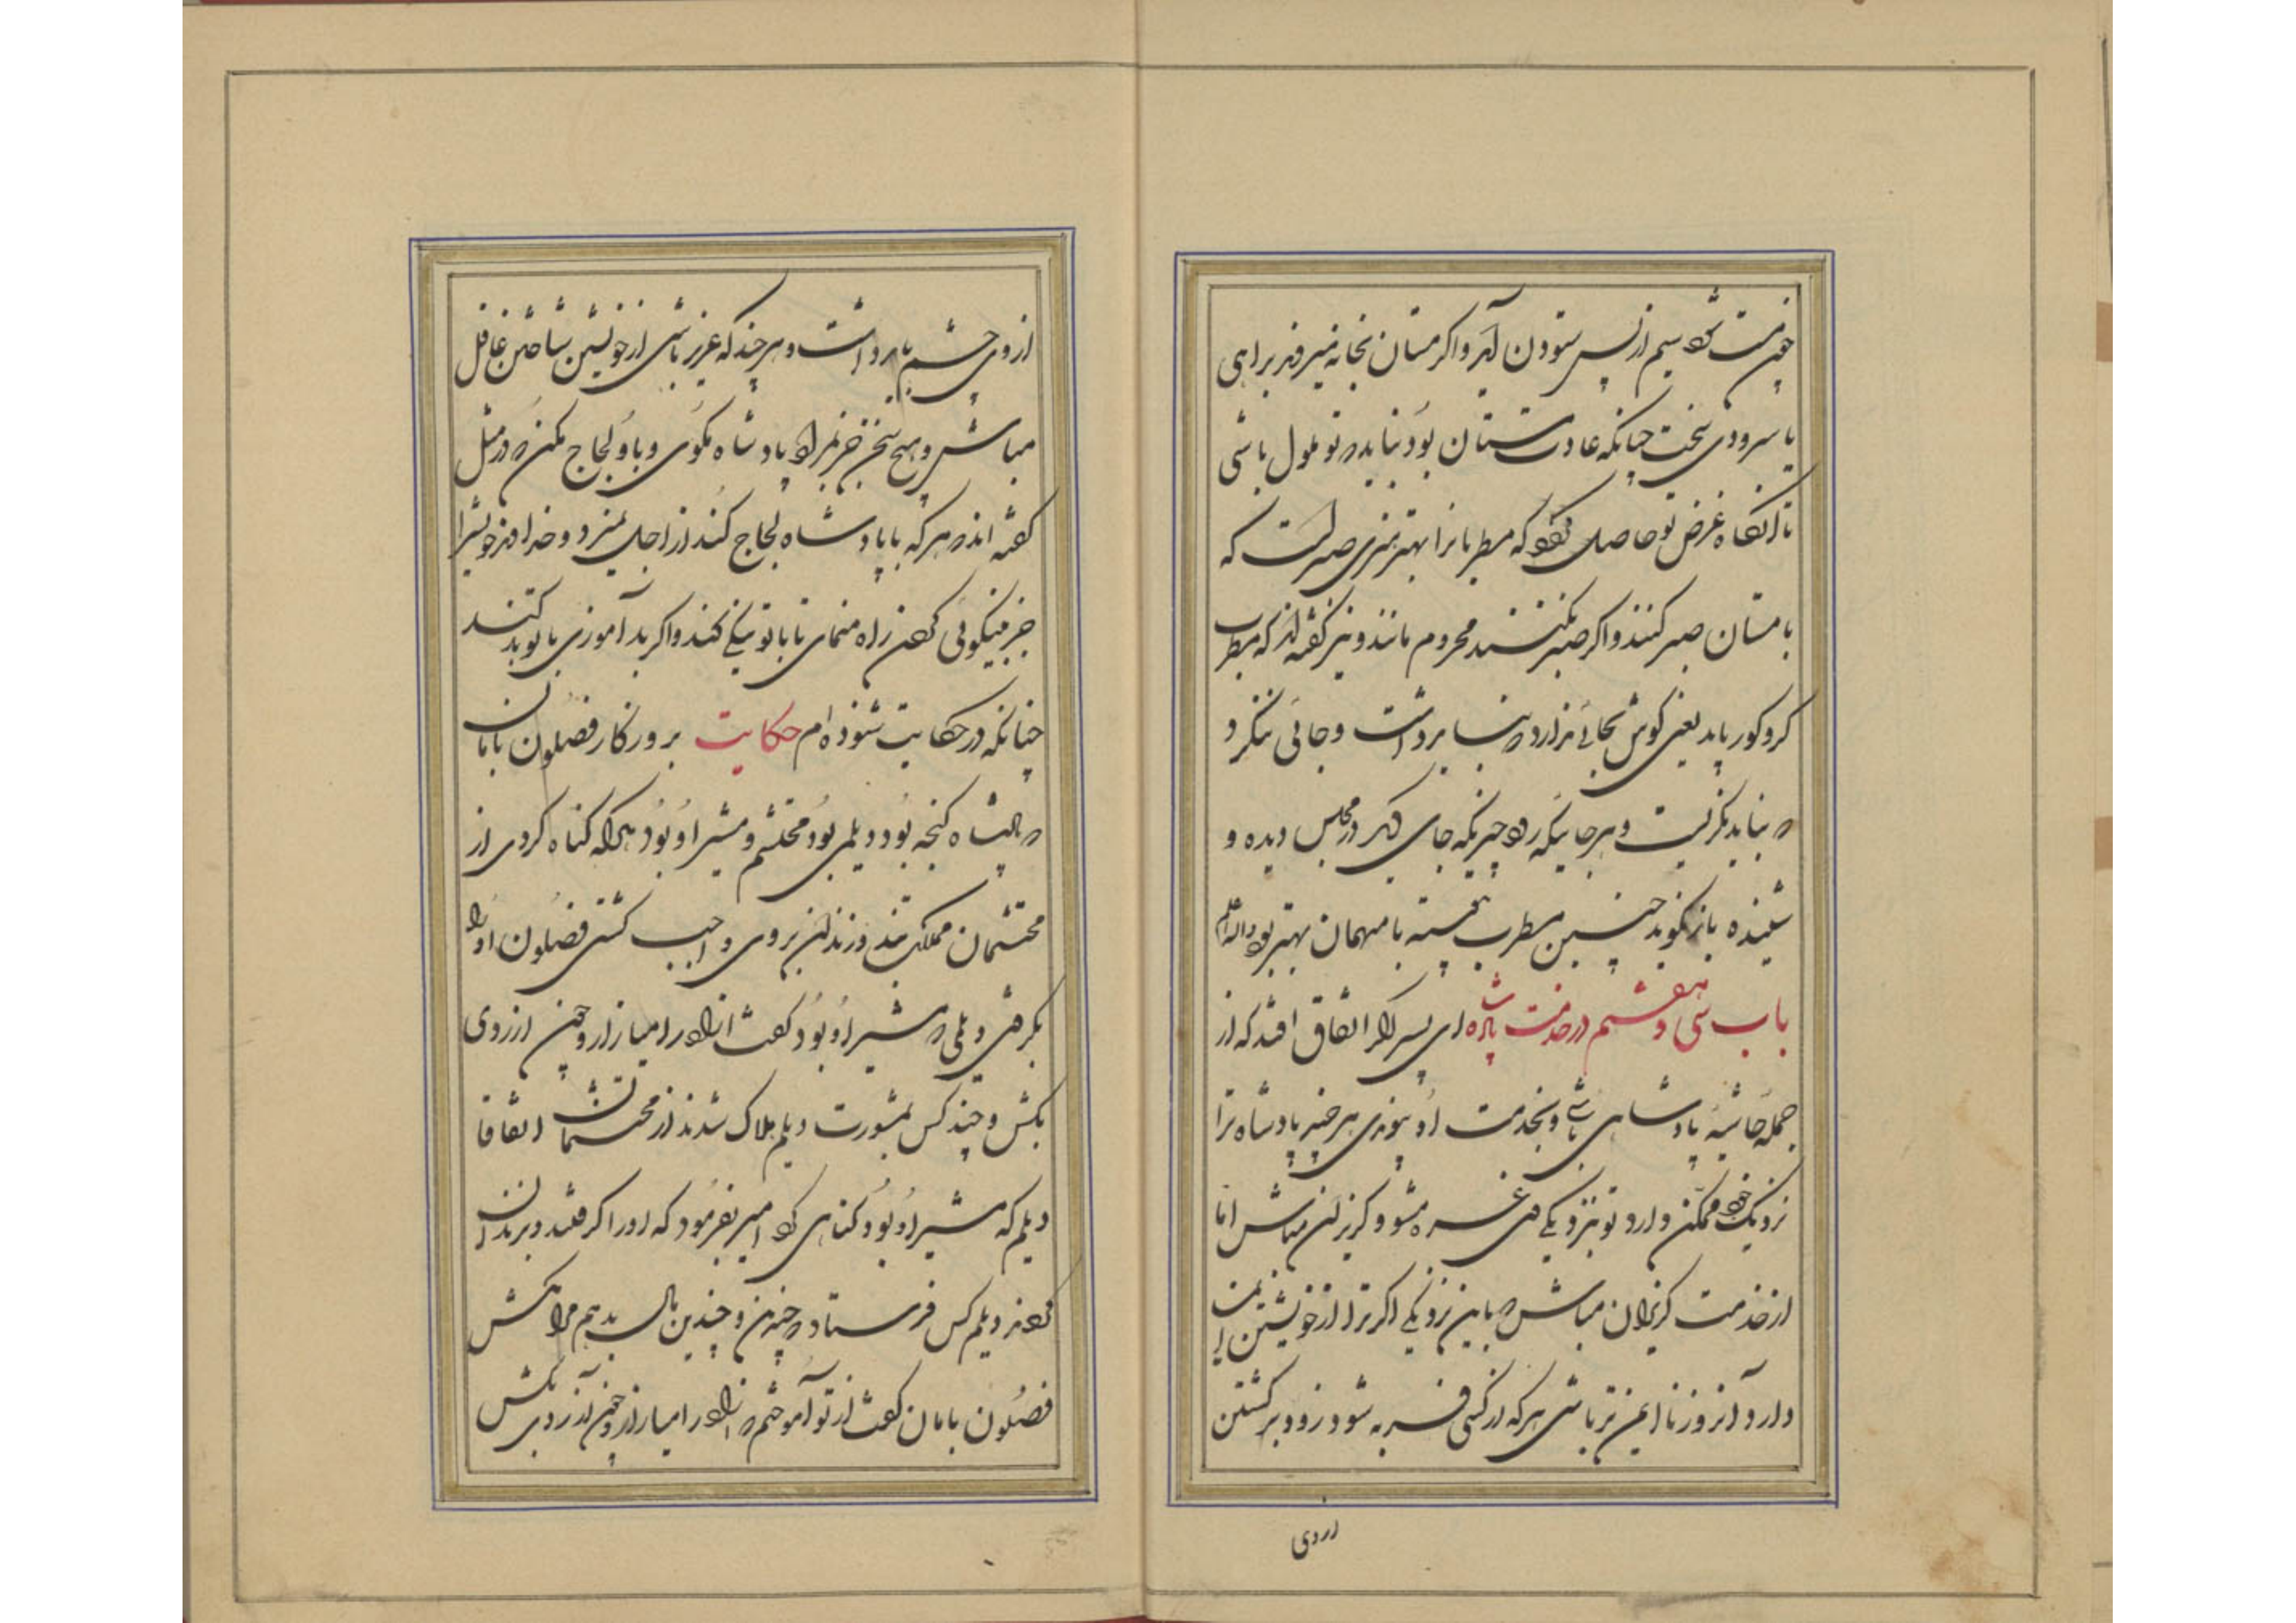 چون مست شود سیم از پس ستودن آید و اگر مستان بخانه میروند براهی
یا سرودی سخت چنانکه عادت مستان بود نباید که تو ملول باشی
تا آنگاه غرض تو حاصل شود که مطربانرا بهتر هنری صبر است که
با مستان صبر کنند و اگر صبر نکنند محروم مانند و نیز گفته‌اند که مطرب
کر و کور باید یعنی گوش بجائی ندارد که نباید داشت و جائی ننگرد
که نباید نگریست و هر جائیکه رود چیزیکه جای دیگر در مجلس دیده و
شنیده باز نگوید چنین مطرب پیوسته با میهمان بهتر بود والله اعلم
باب سی و هفتم در خدمت پادشاه ای پسر اگر اتفاق افتد که از
جمله حاشیهٔ پادشاهی باشی و بخدمت او پیوندی هر چند پادشاه ترا
نزدیک خود ممکن دارد تو بنزدیکی وی غره مشو و گریزان مباش اما
از خدمت گریزان مباش که باین نزدیکی اگر ترا از خویشتن ایمن
دارد آنروز ناایمن تر باشی هر که از کسی فربه شود زود برگشتن
از وی
از وی چشم باید داشت و هر چند که عزیز باشی از خویشتن شناختن غافل
مباش و هیچ سخن جز بمراد پادشاه مگوی و با او لجاج مکن که در مثل
گفته اند که هر که با پادشاه لجاج کند از اجل بمیرد و خداوند خویشرا
جز نیکوئی کردن راه منمای تا با تو نیکی کند و اگر بد آموزی با تو بد کند
چنانکه در حکایت شنوده ام حکایت بروزگار فضلون بامان
که پادشاه گنجه بود دیلمی بود محتشم و مشیر او بود هر که گناه کردی از
محتشمان مملکت بند و زندان بروی واجب گشتی فضلون او را
بگرفتی دیلمی که مشیر او بود گفت آزاد را میازار و چون آزردی
بکش و چند کس بمشورت دیلم هلاک شدند از محتشمان اتفاقا
دیلم که مشیر او بود گناهی کرد امیر بفرمود که او را گرفتند و بزندان
کردند دیلم کس فرستاد که چندین و چندین مال بدهم مرا مکش
فضلون بامان گفت از تو آموختم که آزاد را میازار و چون آزردی بکش